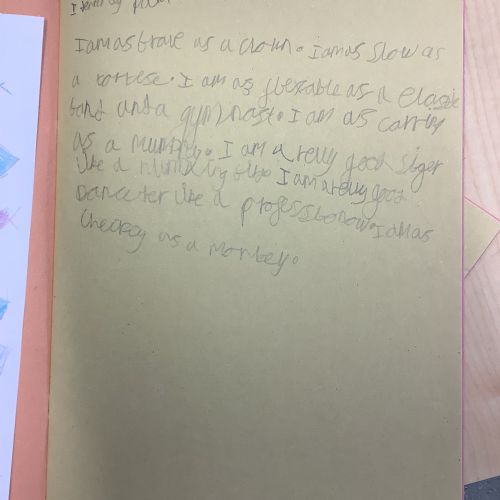 I am as brave as a clown. I am as slow as
a tortese. I am as flexable as a elastic
band and a gymnast. I am as caring
as a mummy. I am a relly good siger
like a I am a relly good
Danceter like a professhonow. I am as
Cheecky as a monkey.